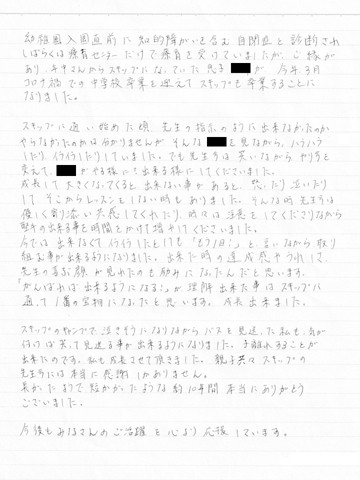 幼稚園入園直前に知的障がいを含む自閉症と診断され
しばらくは療育センターだけで療育を受けていましたが、ご縁が
あり、年中さんからスキップになっていた息子 が 今年3月
コロナ禍での中学校卒業を迎えてスキップも卒業することに
なりました。
スキップに通い始めた頃、先生の指示のように出来なかったのか
やらなかったのかは分かりませんが そんな を見ながら、ハラハラ
したり、イライラしたりしていました。でも先生方は笑いながら やり方を
変えて、 がやる様に！出来る様に！してくださいました。
成長して大きくなってくると、出来ない事が あると、怒ったり 泣いたり
して そこからレッスンをしない時も ありました。そんな時 先生方は
優しく寄り添い共感してくれたり、時々は注意をしてくださりながら
堅斗の出来る事を時間をかけて増やしてくださいました。
今では 出来なくて イライラしたとしても 「もう1回」と 言いながら 取り
組む事が出来るようになりました。出来た時の達成感やうれしさ、
先生の喜ぶ顔が見れたのも励みになったんだと思います。
「がんばれば 出来るようになる」が 理解出来た事は スキップに
通って1番の宝物になったと思います。成長出来ました。
スキップのキャンプで、泣きそうになりながら バスを見送った私も、気が
付けば笑って見送る事が出来るようになりました。子離れすることが
出来たのです。私も成長させて頂きました。親子共々スキップの
先生方には本当に感謝しかありません。
長かったようで短かかったような約10年間 本当にありがとう
ございました。
今後もみなさんのご活躍を心より応援しています。